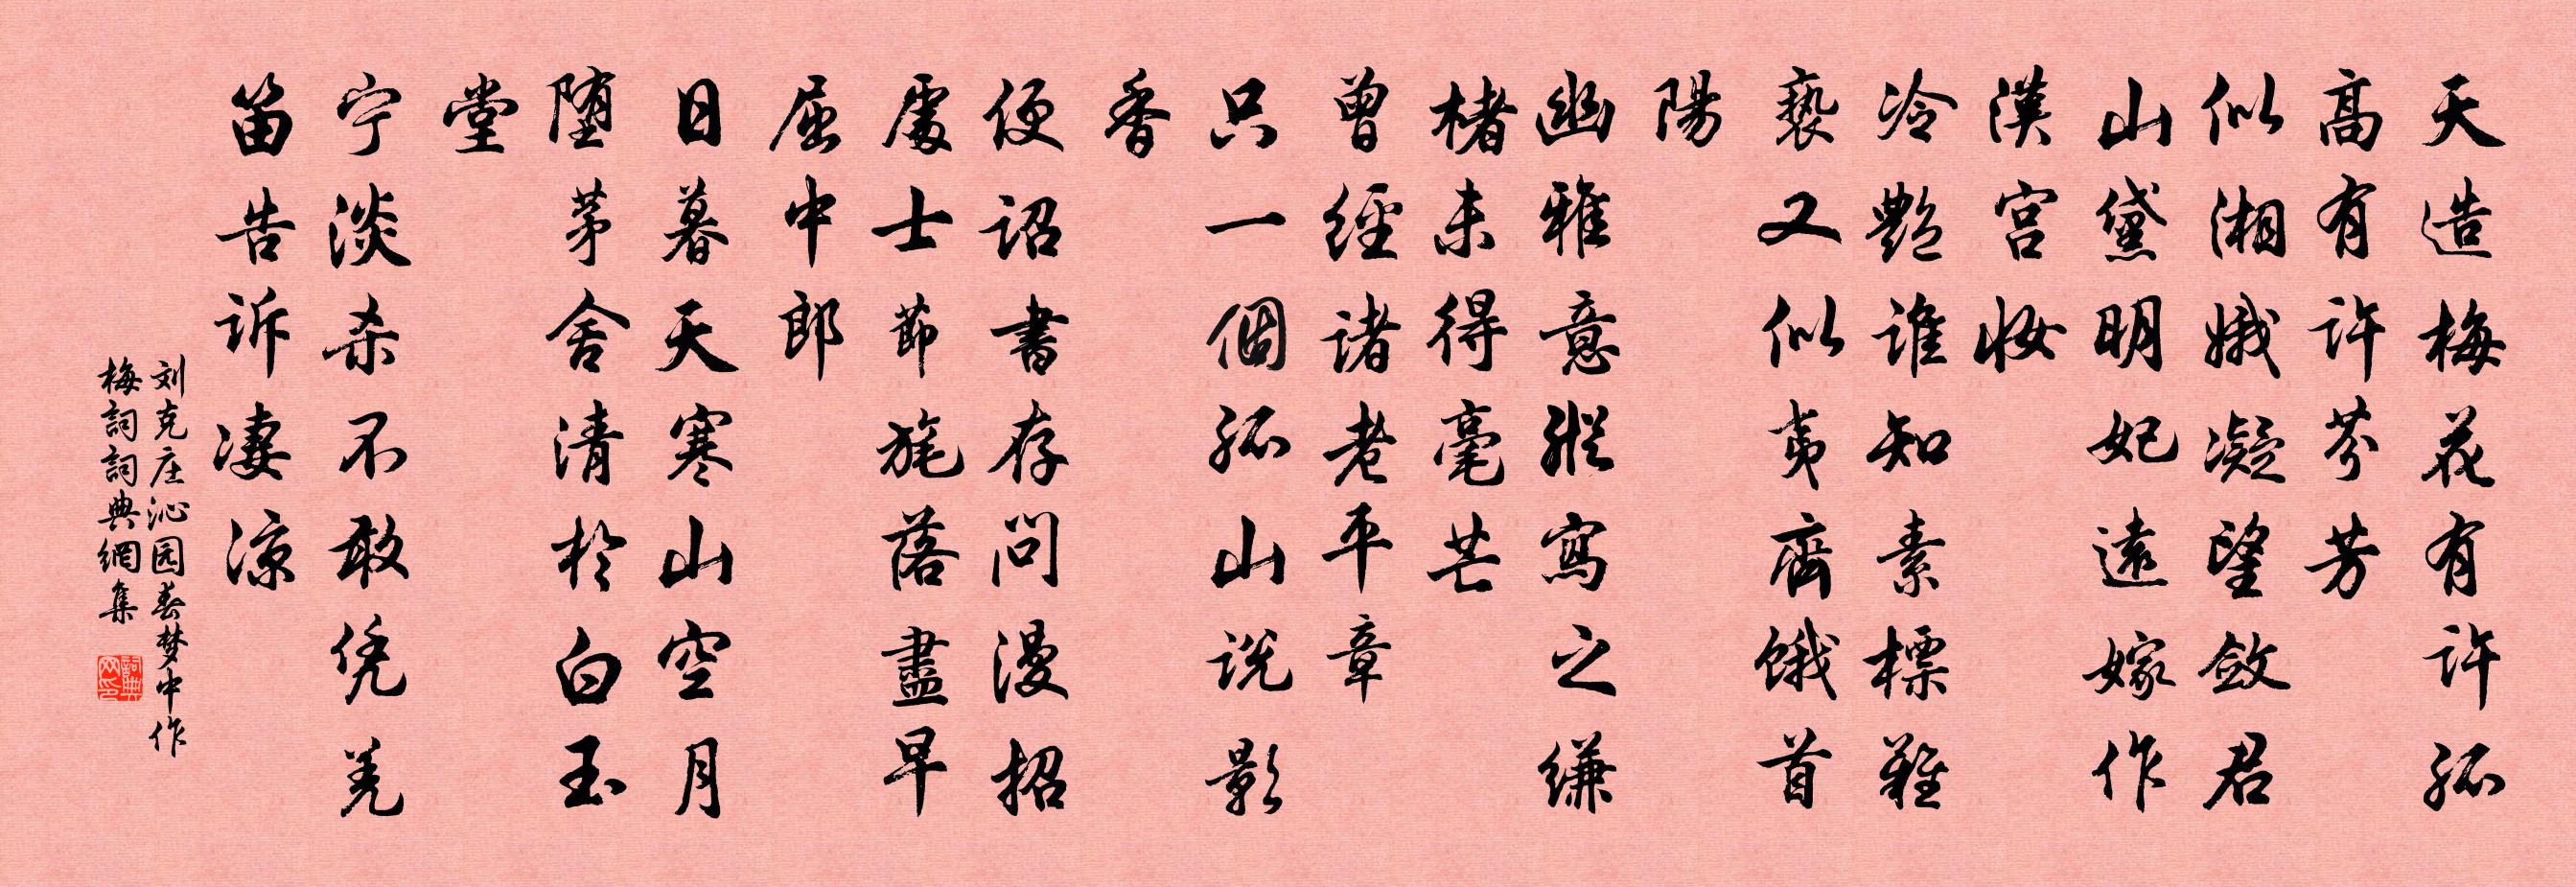 天造梅花有许孤
高有许芬芳
似湘娥凝望敛君
山黛明妃远嫁作
汉宫妆
冷艳谁知素标难
亵又似夷齐饿首
阳
幽雅意纵写之缣
楮未得毫芒
曾经诸老平章
只一個孤山说影
香
便诏書存问漫招
處士節旄落盡早
屈中郎
日暮天寒山空月
堕茅舍清於白玉
堂
宁淡杀不敢凭羌
笛告诉凄凉
刘克庄沁园春梦中作
梅詞詞典網集
詞典网印